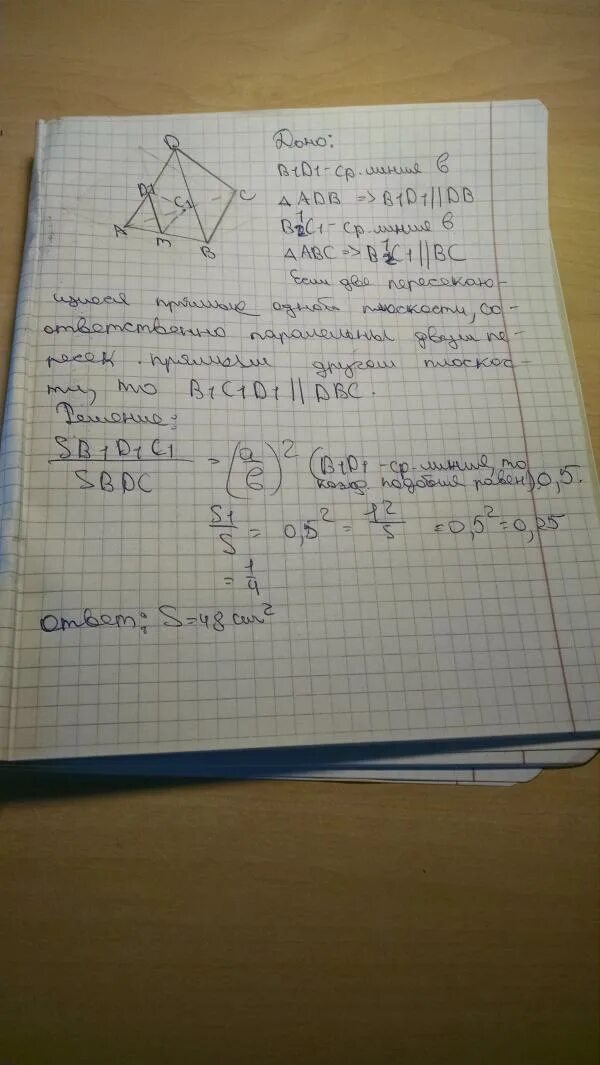 D
D1
C1
C
A
M
B
Дано:
B1D1-ср. линия в
△ ADB => B1D1||DB
B1C1-ср. линия в
△ABC=> B1C1||BC
Если две пересекаю-
щиеся прямые одной плоскости, со-
ответственно паралельны двум пе-
ресек. прямым другой плоскос-
ти, то B1C1D1 || DBC.
Решение:
SB1D1C1/SBDC = (a/b)² (B1D1-ср. линия, то
коэф. подобия равен) 0,5.
S1/S = 0,5² = 12/S = 0,5² = 0,25
= 1/4
ответ: S=48 см²